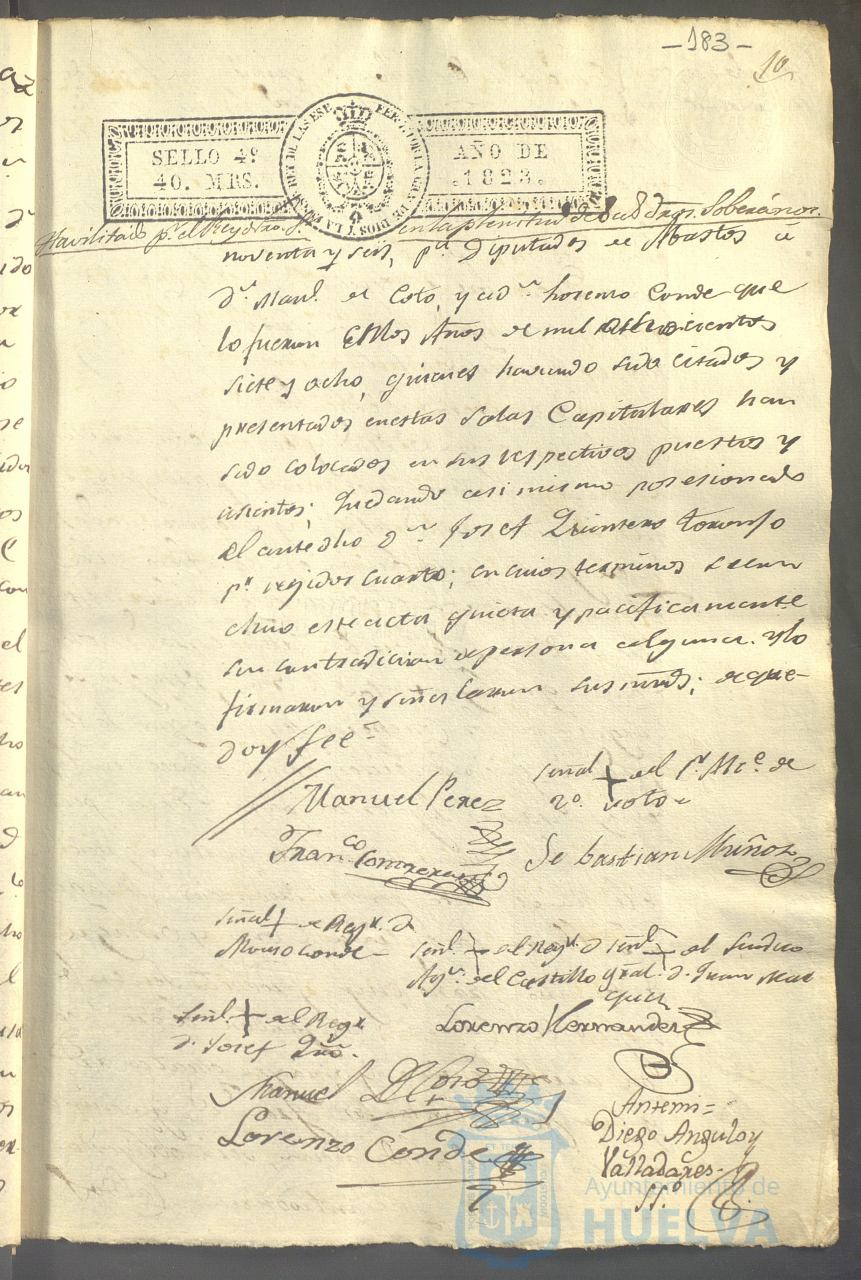 -183-
10
SELLO 4º
40. MRS.
AÑO DE
.1823.
Havilitado pr. el Rey Ntro. S. en la plenitud de sus Drs. Soberanos.
noventa y seis, pa. Diputados de Abastos á
Dn. Manl. del Coto, y á Dn. Lorenzo Conde que
lo fueron en los Años de mil ochocientos
siete y ocho, quienes haviendo sido citados y
presentados en estas Salas Capitulares han
sido colocados en sus respectivos puestos y
asientos; quedando asimismo posesionado
el antedho Dn. Josef Quintero
pr. rejidor cuarto; en cuios terminos
este acta quieta y pacificamente
sin contradicion de persona alguna. Y lo
firmaron y señalaron sus mrds; de que-
doy fee=
Manuel Perez
señal + del Sr. Alce. de
2º. voto
Franco. Contreras
Sebastian Muñoz
señal + de Regr. D
Conde-
señl. + del Regr. D
del Castillo
señl + del Sindico
gral. D. Juan Mar
quez
señl. + del Regr.
D. Josef Qro.
Lorenzo Hernandez
Manuel DlCoto
Lorenzo Conde
Antemi=
Diego Angulo y
Valladares-
Ayuntamiento de
HUELVA